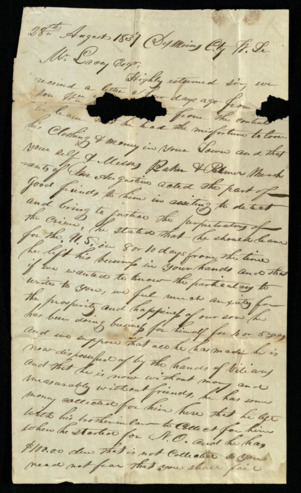 28th August 1857
Mr. Esqr.
Highly esteemed sir, we
received a letter a few days ago from
son Wm from the contents
we he had the misfortune to loose
his Clothing & money in your Town and that
your self & Messrs Baker & Palmer Merch
ants of San Augustine acted the part of
Good friends to him in assisting to detect
and bring to justice the perpetrators of
the Crime, he stated that he should leave
for the N. S. in 8 or 10 days from the time
he left his business in your hands and that
if we wanted to know the particulars to
write to you, we feel much anxiety for
the prosperity and happiness of our son, he
has been doing business for himself for 4 or 5 years
and we suppose that all he has made he is
now dispossessed of by the hands of Villians
and that he is now without money and
measurably without friends, he has some
money collected for him here that he left
with his brother in law to Collect for him
when he started for N. O. and he has
due that is not Collected so you
need not fear that you shall fair